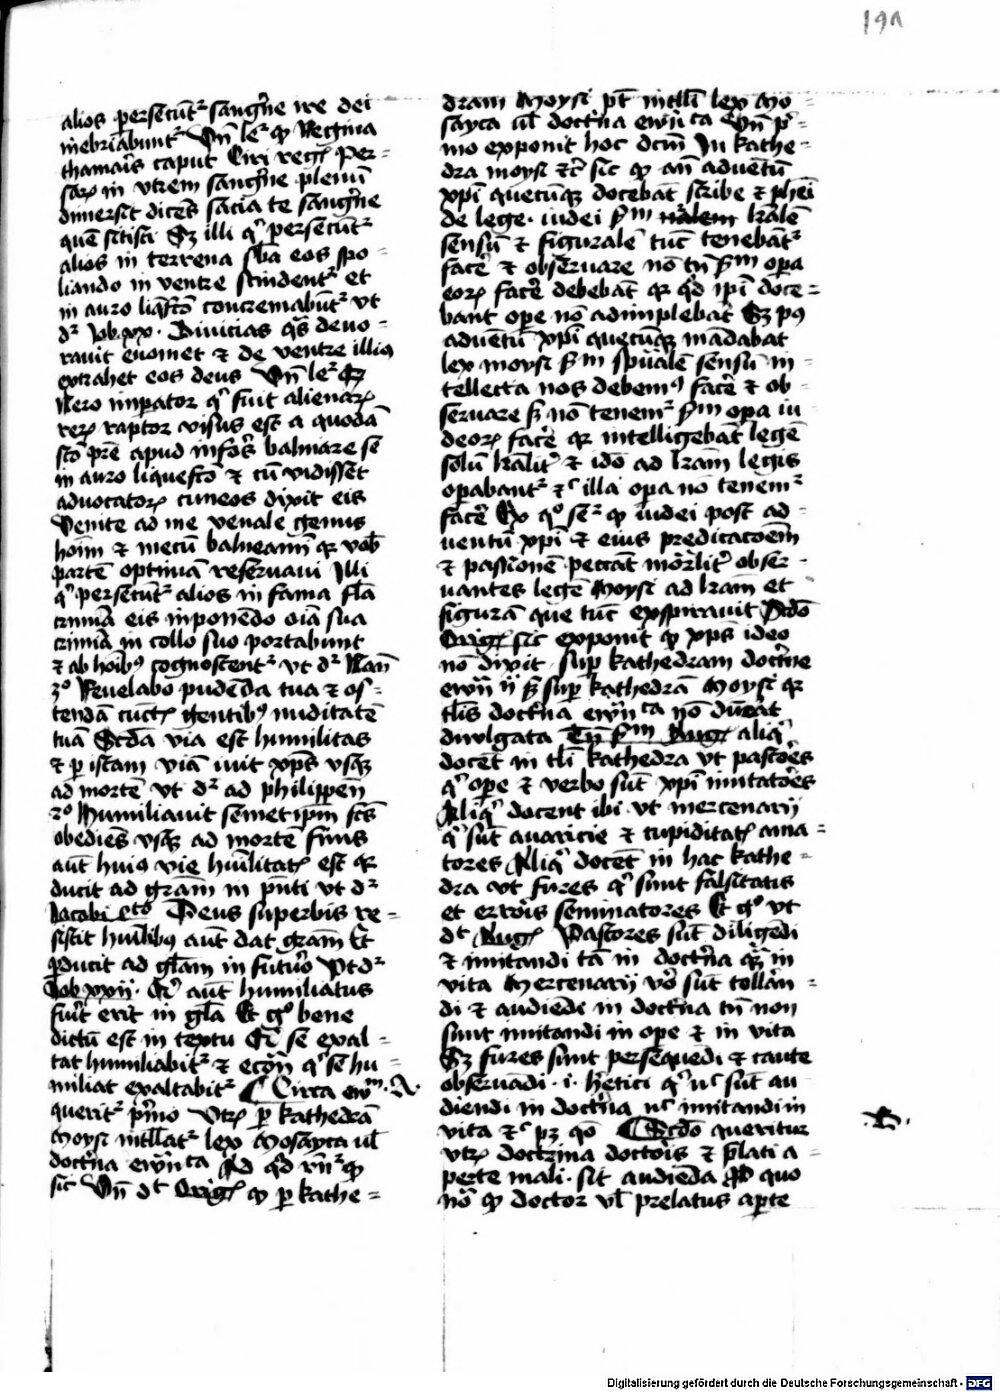 191
alios persecūt᷑ sangnē ire dei
inebriabunt᷑ Vn̄ le᷑ qͥ Regina
thamaris caput Ciri reg᷑ Per-
saꝝ in vtrem sangnē plenū
dimersit dicēs sacia te sangne
quē sitisti Sꝫ illi qͥ persecūt᷑
alios in terrena sb̄a eos spo-
liando in ventre scindent᷑ et
in auro liq̄fcō concremabūt᷑ vt
dr̄ Job xx. Diuicias qᷓs deuo-
rauit euomet ⁊ de ventre illiꝰ
extrahet eos deus Vn̄ le᷑ qͥ
Nero imꝑator qͥ fuit alienaꝝ
reꝝ raptor visus est a quodā
scō prē apud infōs balniare se
in auro liquefcō ⁊ cū vidisset
aduocatoꝝ cuneos dixit eis
Venite ad me venale genus
hoīm ⁊ mecū balneamī qꝛ vob̄
partē optimā reseruaui Illi
qͥ persecūt᷑ alios in fama fl̄a
crimīa eis inponēdo oīa sua
crimīa in collo suo portabunt
⁊ ab hoībꝰ cognoscent᷑ vt dr̄ Naū
3º Reuelabo pudēda tua ⁊ os-
tendā cūct᷑ gentibꝰ nuditatē
tuā Scd̄a via est humilitas
⁊ ꝑ istam viā iuit xp̄s vsqꝫ
ad mortē vt dr̄ ad philippēn
2º Humiliauit semetip̄m fc̄s
obediēs vsqꝫ ad mortē finis
aūt huiꝰ vie hūilitat᷑ est qꝛ
ducit ad grām in p̄nti vt dr̄
Jacobi 4to Deus superbis re-
sistit humlibꝰ aūt dat gram Et
ꝓducit ad glām in futuro Vt dr̄
Job xxij. Qͥ aūt humiliatus
fuīt erit in glā Et gͦ bene
dictū est in textu Qͥ se exal-
tat humiliabit᷑ ⁊ eciā qͥ se hu-
miliat exaltabit᷑ Circa ewm̄ . A.
querit᷑ pͥmo Vtꝝ ꝑ kathedrā
Moysi intll̄at᷑ lex Mosayca ul̄
doctrīa ewāica Ad qd̄ rn̄᷑ qͥ
sic Vn̄ dt Orig᷑ qͥ ꝑ kathe-
dram Moysi pt̄ intlli lex Mo-
sayca ul̄ doct'na ewāica Vn̄ pͥ-
mo exponit hoc dcm̄ In kathe-
dra moysi ⁊c̄ sic qͥ an̄ aduentū
xp̄i quecūqꝫ docebāt scribe ⁊ phei
de lege. iudei ẜm nr̄alem lrālē
sensū ⁊ figuralē tūc tenebāt᷑
facē ⁊ obseruare nō tn̄ ẜm oꝑa
eoꝝ facē debebāt qꝛ qd̄ ip̄i doce-
bant oꝑe nō adimplebāt Sꝫ pꝰ
aduentū xp̄i quecūqꝫ mādabat
lex moysi ẜm sp̄ualē sensū in-
tellecta nos debemꝰ facē ⁊ ob-
seruare sꝫ nō tenem᷑ ẜm oꝑa iu-
deoꝝ facē qꝛ intelligebāt legē
solū lrālitͥ ⁊ idō ad lrām legis
oꝑabant᷑ ⁊c̄ illa oꝑa nō tenem᷑
facē Ex qͦ se᷑ qͥ iudei post ad-
uentū xp̄i ⁊ eius predicatoēm
⁊ passionē peccāt mōrlitͥ obser-
uantes legē Moysi ad lrām et
figurā que tūc exspirauit Scd̄o
Orig᷑ sic exponit qͥ xp̄s ideo
nō dixit. suꝑ kathedram doct'ne
ewāgij sꝫ suꝑ kathedrā Moysi qꝛ
tlis doct'na ewāica nō dūeāt
diuulgata Tn̄ ẜm Aug᷑ aliqͥ
docēt in tli kathedra vt pastoēs
qͥ oꝑe ⁊ verbo sūt xp̄i imitatoēs
Aliqͥ docent ibi. vt mercenarij
qͥ sūt auaricie ⁊ cupiditat᷑ ama-
tores Aliqͥ docēt in hac kathe-
dra vt fures qͥ sunt falsitatis
et errōis seminatores Et gͦ vt
dt Aug᷑ Pastores sūt diligēdi
⁊ imitandi tā in doctrīa qᷓꝫ in
vita Mercenarij vͦ sūt tollān-
di ⁊ audiēdi in doctrīa tn̄ non
sunt imitandi in oꝑe ⁊ in vita
Sꝫ fures sunt perseqūedi ⁊ caute
obseruādi. i. hetici qͥ nͨ sūt au-
diendi in doctrīa nͨ imitandi in
vita ⁊c̄ pꝫ qō Scd̄o queritur
vtꝝ doctrina doctōis ⁊ p̄lati a-
perte mali. sit audiēda Ad quo
nō qͥ doctor vl̄ prelatus aperte
.B.
Digitalisierung gefördert durch die Deutsche Forschungsgemeinschaft - DFG